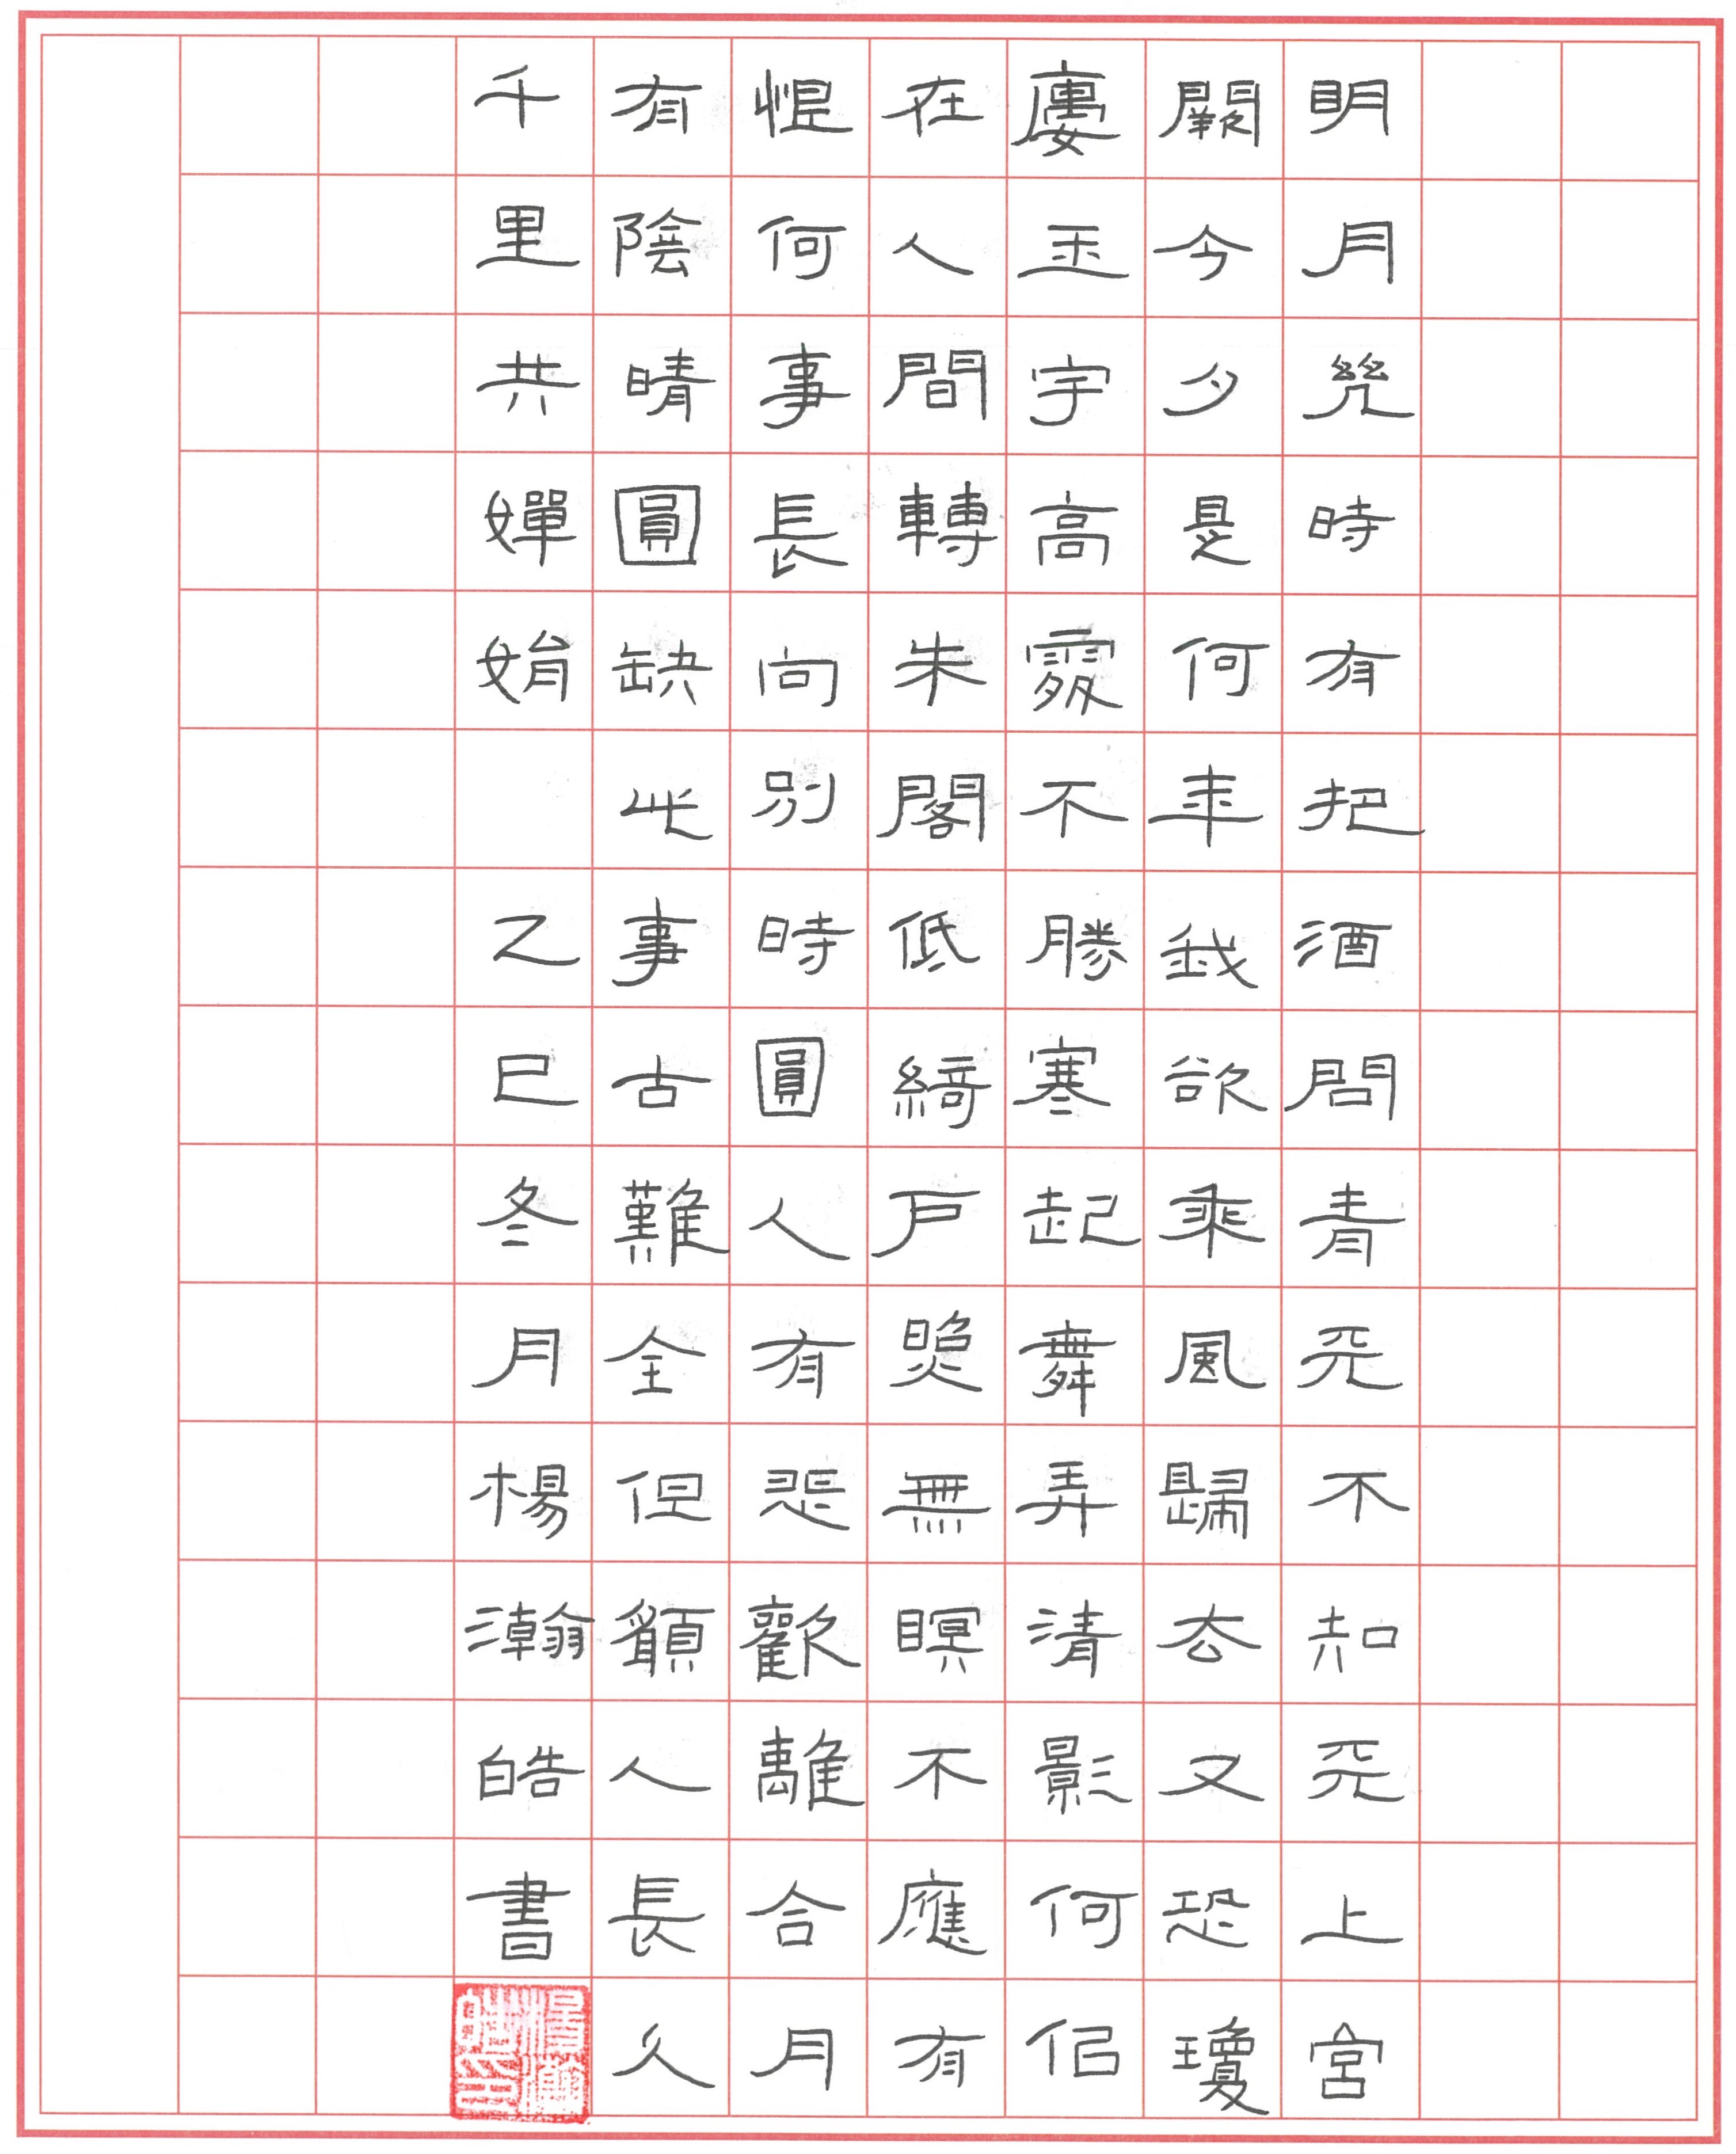 明月幾時有把酒問青天不知天上宮
闕今夕是何年我欲乘風歸去又恐瓊
廔玉宇高處不勝寒起舞弄清影何佀
在人間轉朱閣低綺戶照無瞑不應有
恨何事長向別時圓人有悲歡離合月
有陰晴圓缺此事古難全但願人長久
千里共嬋娟 乙巳冬月楊瀚皓書
楊瀚皓印